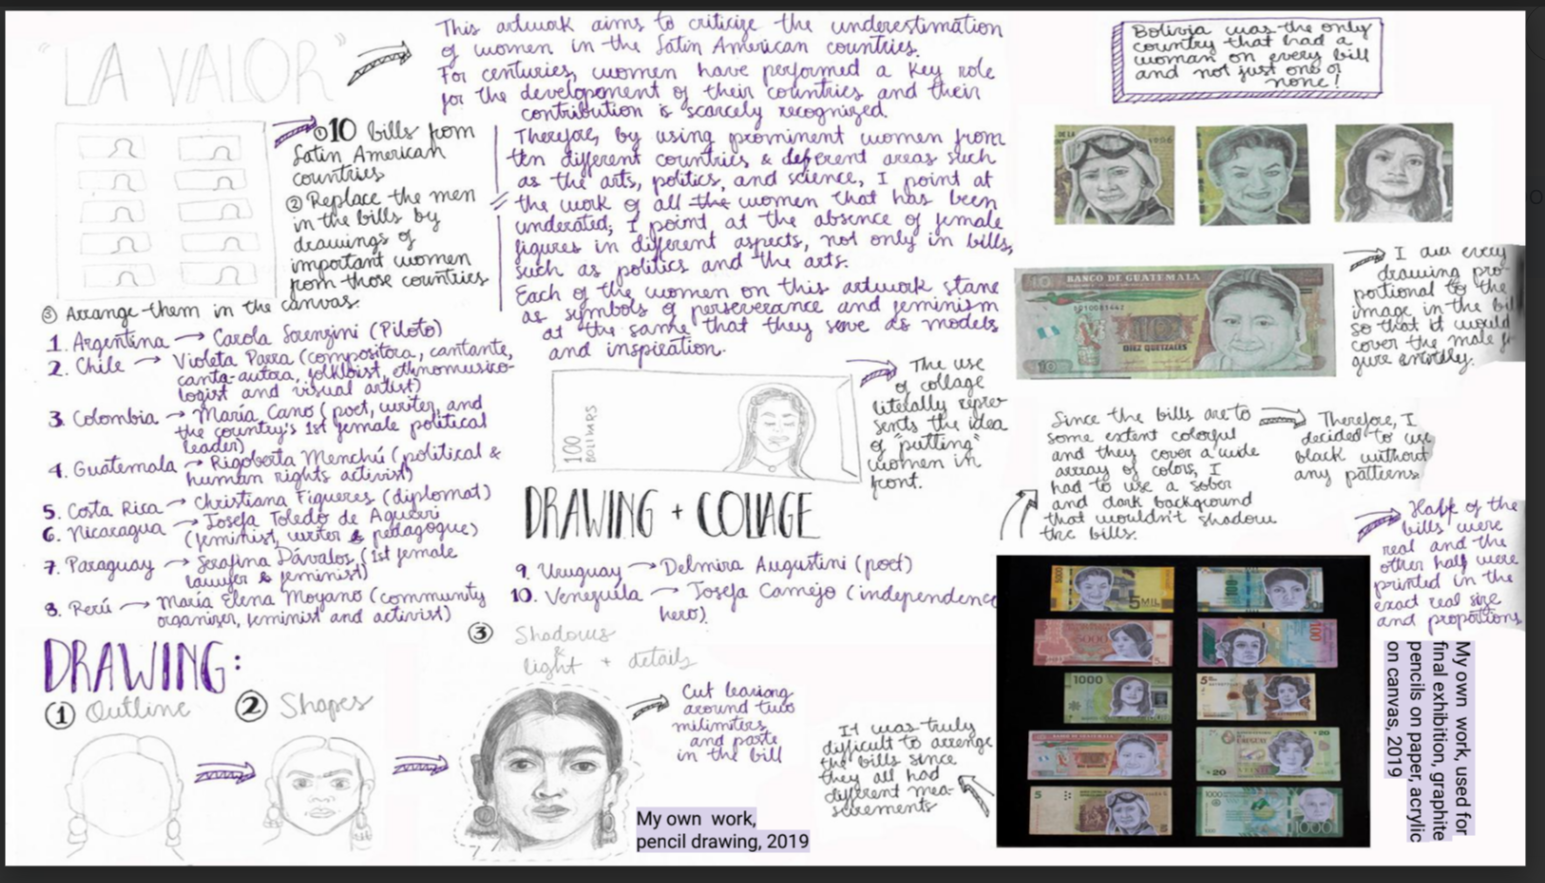 "LA VALOR"
This artwork aims to criticize the underestimation
of women in the Latin American countries.
For centuries, women have performed a key role
for the development of their countries and their
contribution is scarcely recognized.
Therefore, by using prominent women from
ten different countries & deferent areas such
as the arts, politics, and science, I point at
the work of all the women that has been
underated; I point at the absence of female
figures in different aspects, not only in bills,
such as politics and the arts.
Each of the women on this artwork stane
as symbols of perseverance and feminism
at the same that they serve as models
and inspiration.
① 10 bills from
Latin American
countries
② Replace the men
in the bills by
drawings of
important women
from those countries
③ Arrange them in the canvas.
1. Argentina → Carola Lorenzini (Piloto)
2. Chile → Violeta Parra (compositora, cantante,
canta-autora, folkloist, ethnomusico-
logist and visual artist)
3. Colombia → María Cano (poet, writer, and
the country's 1st female political
leader)
4. Guatemala → Rigoberta Menchú (political &
human rights activist)
5. Costa Rica → Christiana Figueres (diplomat)
6. Nicaragua → Josefa Toledo de Aguerri
(feminist, writer & pedagogue)
7. Paraguay → Serafina Dávalos (1st female
lawyer & feminist)
8. Perú → María Elena Moyano (community
organizer, feminist and activist)
9. Uruguay → Delmira Augustini (poet)
10. Venezuela → Josefa Camejo (independence
hero).
100
BOLIVARS
The use
of collage
literally repre-
sents the idea
of "putting"
women in
front.
DRAWING + COLLAGE
DRAWING:
① Outline
② Shapes
③ Shadows
&
light + details
Cut leaving
around two
milimiters
and paste
in the bill
My own work,
pencil drawing, 2019
Bolivia was the only
country that had a
woman on every bill
and not just one or
none!
BANCO DE GUATEMALA
DIEZ QUETZALES
10
I did every
drawing pro-
portional to the
image in the bil
so that it would
cover the male fi
gure entirely.
Since the bills are to
some extent colorful
and they cover a wide
array of colors, I
had to use a sober
and dark background
that wouldn't shadow
the bills.
Therefore, I
decided to use
black without
any patterns
Half of the
bills were
real and the
other half were
printed in the
exact real size
and proportions
It was truly
difficult to arrange
the bills since
they all had
different mea-
surements
5000
5 MIL
100
5000
100
1000
20
20
5
1000
My own work, used for
final exhibition, graphite
pencils on paper, acrylic
on canvas, 2019